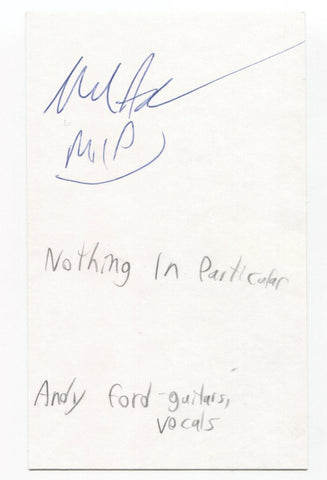 Nothing In Particular
Andy Ford - guitars,
vocals